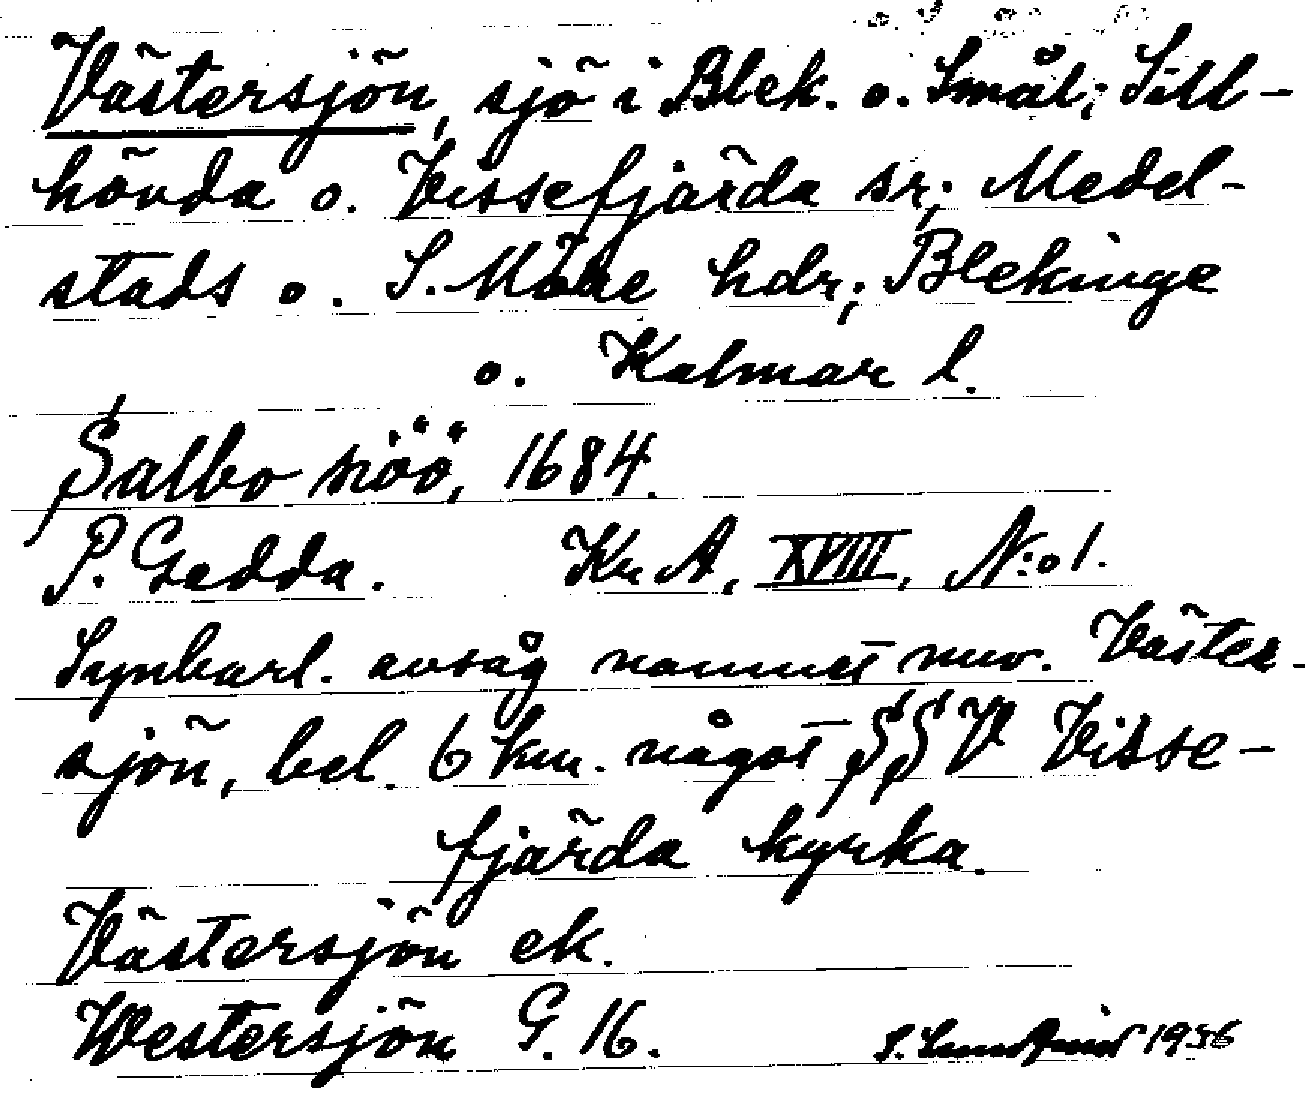 Västersjön, sjö i Blek. o. Smål; Sill-
hövda o. Vissefjärda sr; Medel-
stads o. S. Möre hdr; Blekinge
o. Kalmar l.
Salbo siöö, 1684.
P. Gedda. Kr A, XVIII, N:o 1.
Synbarl. avsåg namnet nuv. Väster-
sjön, bel. 6 km. något SSV Visse-
fjärda kyrka.
Västersjön ek.
Westersjön G. 16.
1936